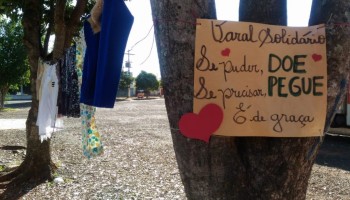 Varal Solidário
Se puder, DOE
Se precisar, PEGUE
É de graça